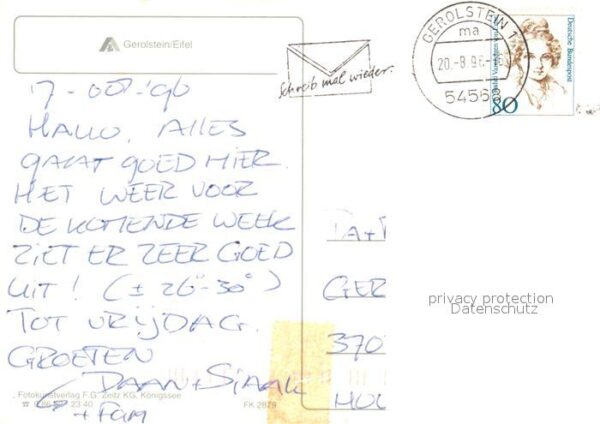 Gerolstein/Eifel
17-008-'96
HALLO, ALLES
GAAT GOED HIER.
HET WEER VOOR
DE KOMENDE WEEK
ZIET ER ZEER GOED
UIT! (± 26°-30°)
TOT VRIJDAG.
GROETEN
DAAN + SJAAK
+ FAM
Fotokunstverlag F.G. Zeitz KG, Königssee
FK 2879
Schreib mal wieder.
GEROLSTEIN 1
ma
20.-8.96
5456
Deutsche Bundespost
80
GER
370
HOL
privacy protection
Datenschutz